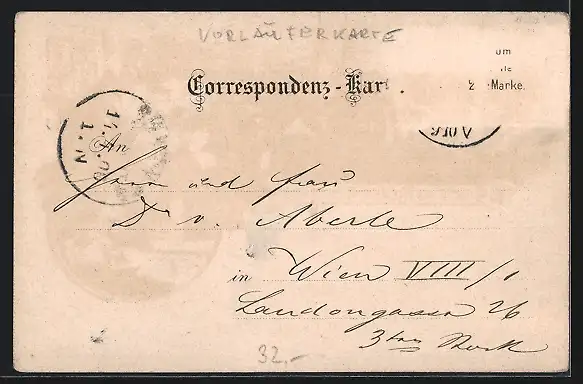 VORLÄUFERKARTE
um
Correspondenz-Kar
Marke.
An
Herrn und Frau
Dr v. Aberle
in Wien VIII/1
Laudongasse 26
3ten Stock
32,-